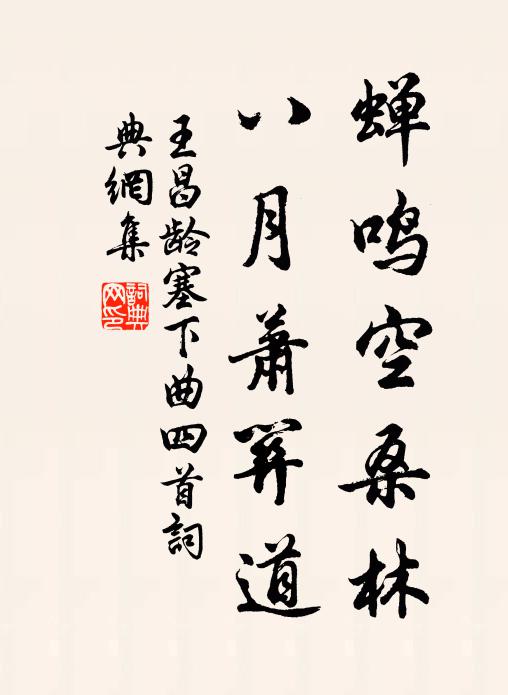 蝉鸣空桑林
八月萧关道
王昌龄塞下曲四首詞
典網集
詞典网印